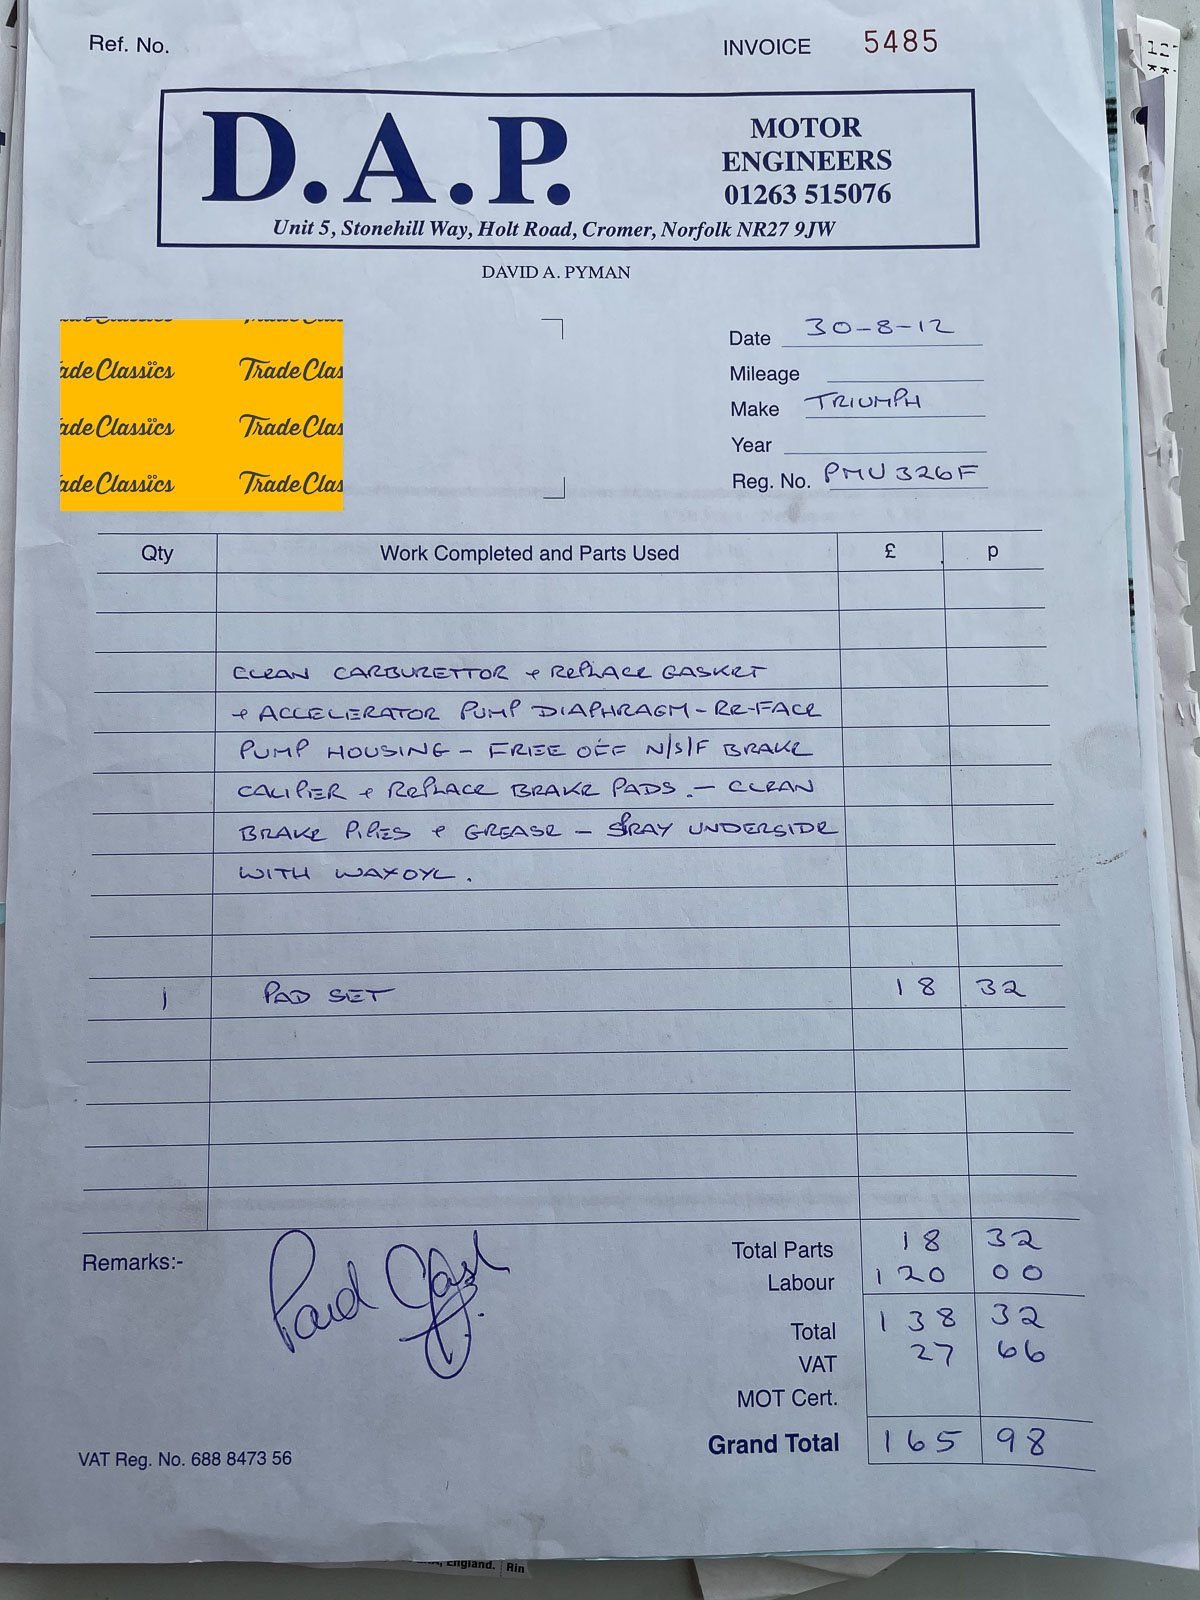 Ref. No.
INVOICE 5485
D.A.P.
MOTOR
ENGINEERS
01263 515076
Unit 5, Stonehill Way, Holt Road, Cromer, Norfolk NR27 9JW
DAVID A. PYMAN
ade Classics Trade Clas
ade Classics Trade Clas
ade Classics Trade Clas
Date 30-8-12
Mileage
Make TRIUMPH
Year
Reg. No. PMU 326F
Qty Work Completed and Parts Used £ p
CLEAN CARBURETTOR + REPLACE GASKET
+ ACCELERATOR PUMP DIAPHRAGM - RE-FACE
PUMP HOUSING - FREE OFF N/S/F BRAKE
CALIPER + REPLACE BRAKE PADS. - CLEAN
BRAKE PIPES + GREASE - SPRAY UNDERSIDE
WITH WAXOYL.
1 PAD SET 18 32
Remarks:- Paid Cash
Total Parts 18 32
Labour 120 00
Total 138 32
VAT 27 66
MOT Cert.
Grand Total 165 98
VAT Reg. No. 688 8473 56
England. Rin